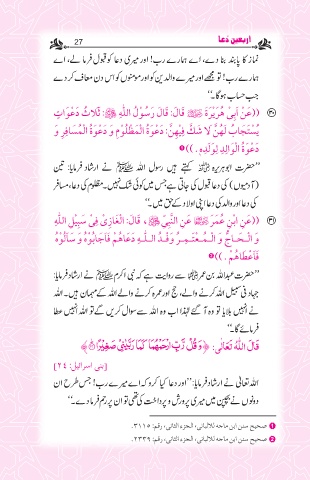 اربعین دعا
27
نماز کا پابند بنا دے، اے ہمارے رب! اور میری دعا کو قبول فرما لے، اے
ہمارے رب! تو مجھے اور میرے والدین کو اور مومنوں کو اس دن معاف کر دے
جب حساب ہوگا۔“
((عَنْ اَبِی هُرَيْرَةَ ﷺ قَالَ: قَالَ رَسُوْلُ اللّٰهِ ﷺ: ثَلَاثُ دَعَوَاتٍ ۳۰
يُسْتَجَابُ لَهُنَّ لَا شَكَّ فِيهِنَّ: دَعْوَةُ الْمَظْلُوْمِ وَ دَعْوَةُ الْمُسَافِرِ وَ
دَعْوَةُ الْوَالِدِ لِوَلَدِهِ.)) ❶
”حضرت ابو ہریرہ کہتے ہیں رسول اللہ ﷺ نے ارشاد فرمایا: تین
(آدمیوں) کی دعا قبول کی جاتی ہے جس میں کوئی شک نہیں۔ مظلوم کی دعا، مسافر
کی دعا اور والد کی دعا اپنی اولاد کے حق میں۔“
((عَنِ ابْنِ عُمَرَ عَنِ النَّبِيِّ ﷺ، قَالَ: الْغَازِيْ فِيْ سَبِيْلِ اللّٰهِ ۳۱
وَ الْحَاجُّ وَ الْمُعْتَمِرُ وَفْدُ اللّٰهِ دَعَاهُمْ فَاَجَابُوْهُ وَ سَاَلُوْهُ
فَاَعْطَاهُمْ.)) ❷
”حضرت عبداللہ بن عمر سے روایت ہے کہ نبی اکرم ﷺ نے ارشاد فرمایا:
جہاد فی سبیل اللہ کرنے والے، حج اور عمرہ کرنے والے اللہ کے مہمان ہیں۔ اللہ
نے انہیں بلایا تو وہ آ گئے لہٰذا اب وہ اللہ سے سوال کریں گے تو اللہ انہیں عطا
فرمائے گا۔“
قَالَ اللّٰهُ تَعَالٰى: ﴿وَ قُلْ رَّبِّ ارْحَمْهُمَا كَمَا رَبَّيٰنِيْ صَغِيْرًا﴾
[بنی اسرائیل: ۲٤]
اللہ تعالیٰ نے ارشاد فرمایا: ”اور دعا کیا کرو کہ اے میرے رب! جس طرح ان
دونوں نے بچپن میں میری پرورش و پرداخت کی تھی تو ان پر رحم فرما دے۔“
❶ صحیح سنن ابن ماجه للالبانی، الجزء الثانی، رقم: ۳۱۱۵.
❷ صحیح سنن ابن ماجه للالبانی، الجزء الثانی، رقم: ۲۳۳۹.